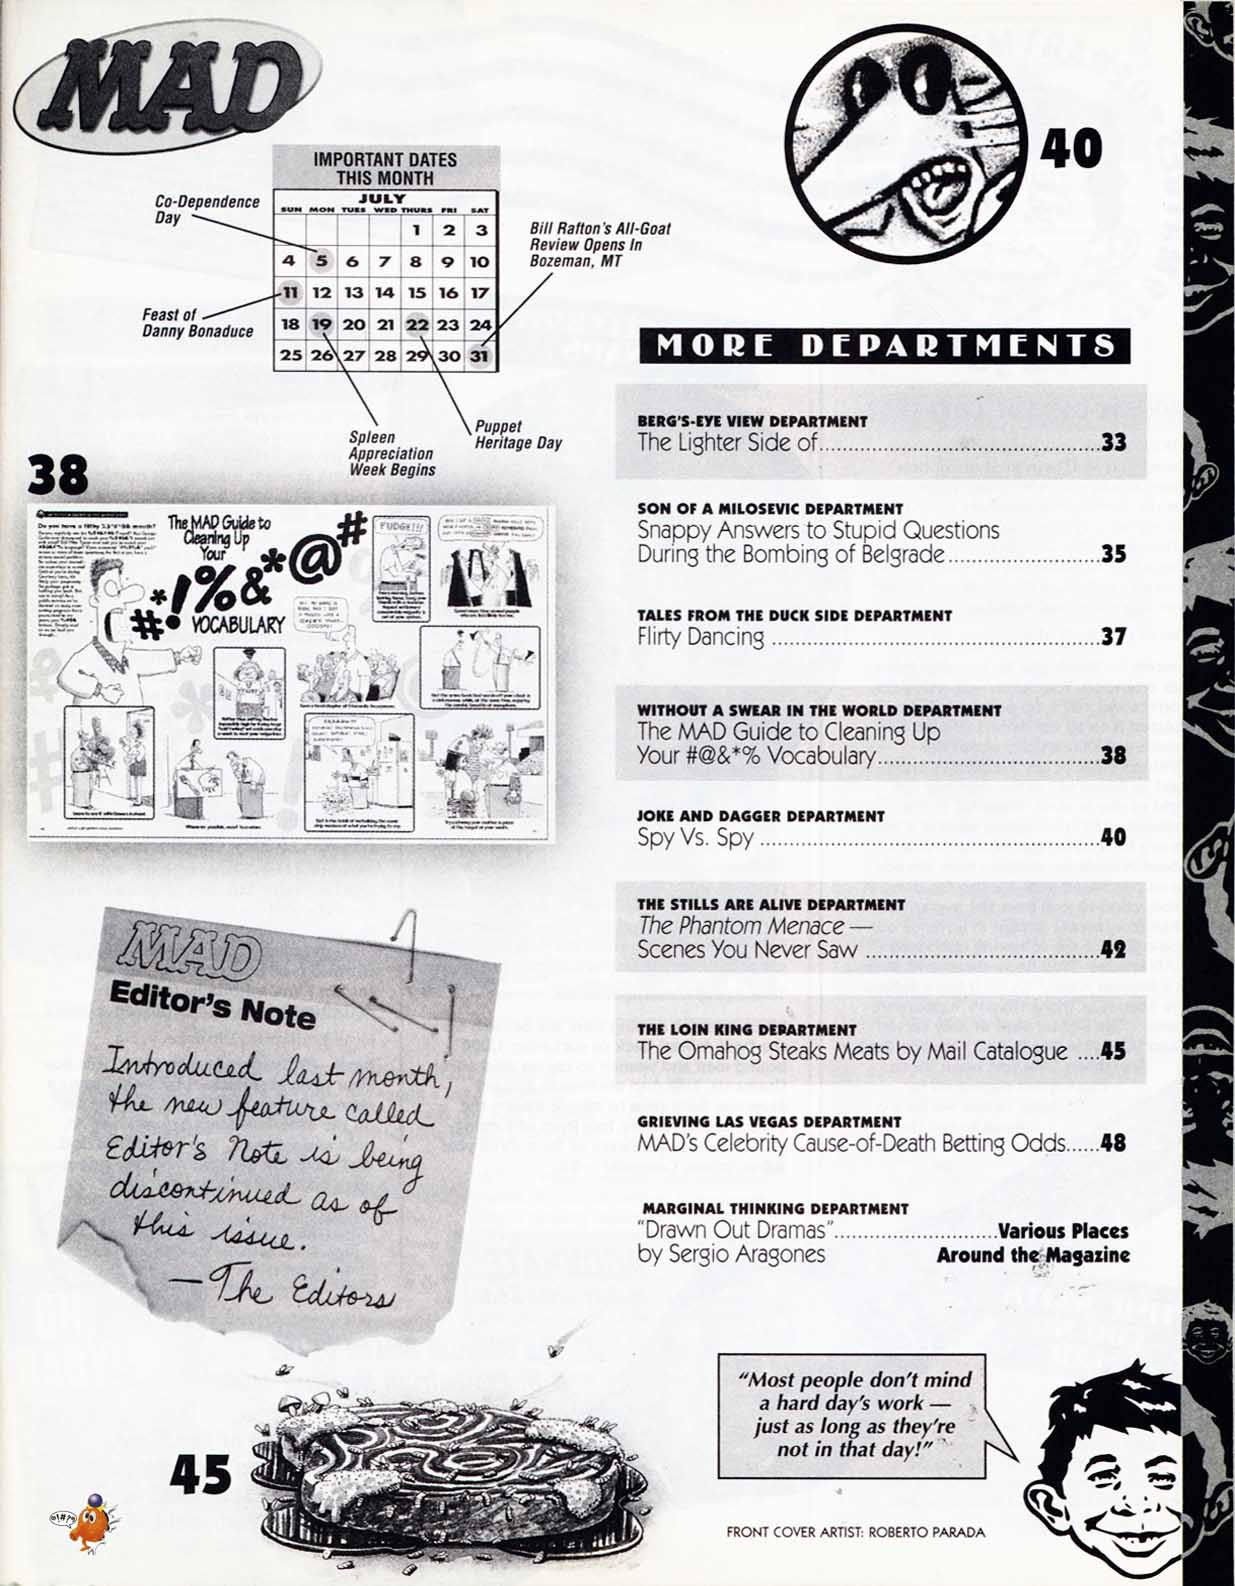 MAD
IMPORTANT DATES
THIS MONTH
JULY
SUN MON TUES WED THURS FRI SAT
1 2 3
4 5 6 7 8 9 10
11 12 13 14 15 16 17
18 19 20 21 22 23 24
25 26 27 28 29 30 31
Co-Dependence
Day
Feast of
Danny Bonaduce
Bill Rafton's All-Goat
Review Opens In
Bozeman, MT
Spleen
Appreciation
Week Begins
Puppet
Heritage Day
40
38
The MAD Guide to
Cleaning Up
Your
*#!%&*@#
VOCABULARY
FUDGE!!!
MAD
Editor's Note
Introduced last month,
the new feature called
Editor's Note is being
discontinued as of
this issue.
—The Editors
45
@!#?@
MORE DEPARTMENTS
BERG'S-EYE VIEW DEPARTMENT
The Lighter Side of 33
SON OF A MILOSEVIC DEPARTMENT
Snappy Answers to Stupid Questions
During the Bombing of Belgrade 35
TALES FROM THE DUCK SIDE DEPARTMENT
Flirty Dancing 37
WITHOUT A SWEAR IN THE WORLD DEPARTMENT
The MAD Guide to Cleaning Up
Your #@&*% Vocabulary 38
JOKE AND DAGGER DEPARTMENT
Spy Vs. Spy 40
THE STILLS ARE ALIVE DEPARTMENT
The Phantom Menace —
Scenes You Never Saw 42
THE LOIN KING DEPARTMENT
The Omahog Steaks Meats by Mail Catalogue 45
GRIEVING LAS VEGAS DEPARTMENT
MAD's Celebrity Cause-of-Death Betting Odds 48
MARGINAL THINKING DEPARTMENT
"Drawn Out Dramas" Various Places
by Sergio Aragones Around the Magazine
"Most people don't mind
a hard day's work —
just as long as they're
not in that day!"
FRONT COVER ARTIST: ROBERTO PARADA